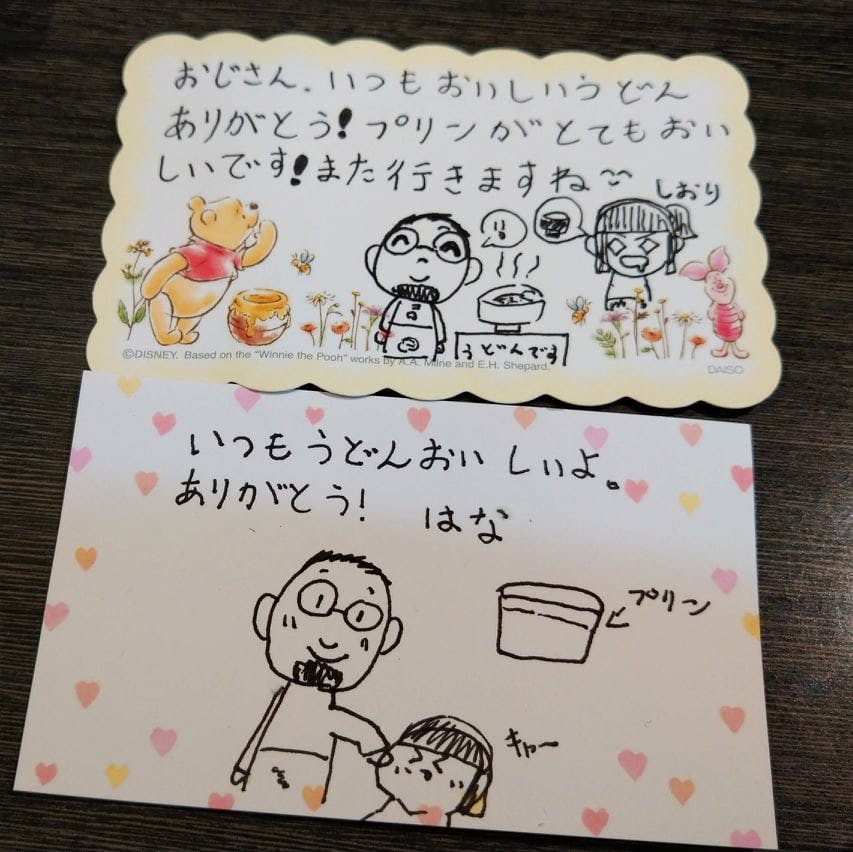 おじさん、いつもおいしいうどん
ありがとう!プリンがとてもおい
しいです!また行きますね
しおり
うどんです
©DISNEY. Based on the "Winnie the Pooh" works by A.A. Milne and E.H. Shepard.
DAISO
いつもうどんおいしいよ。
ありがとう!
はな
プリン
キャー